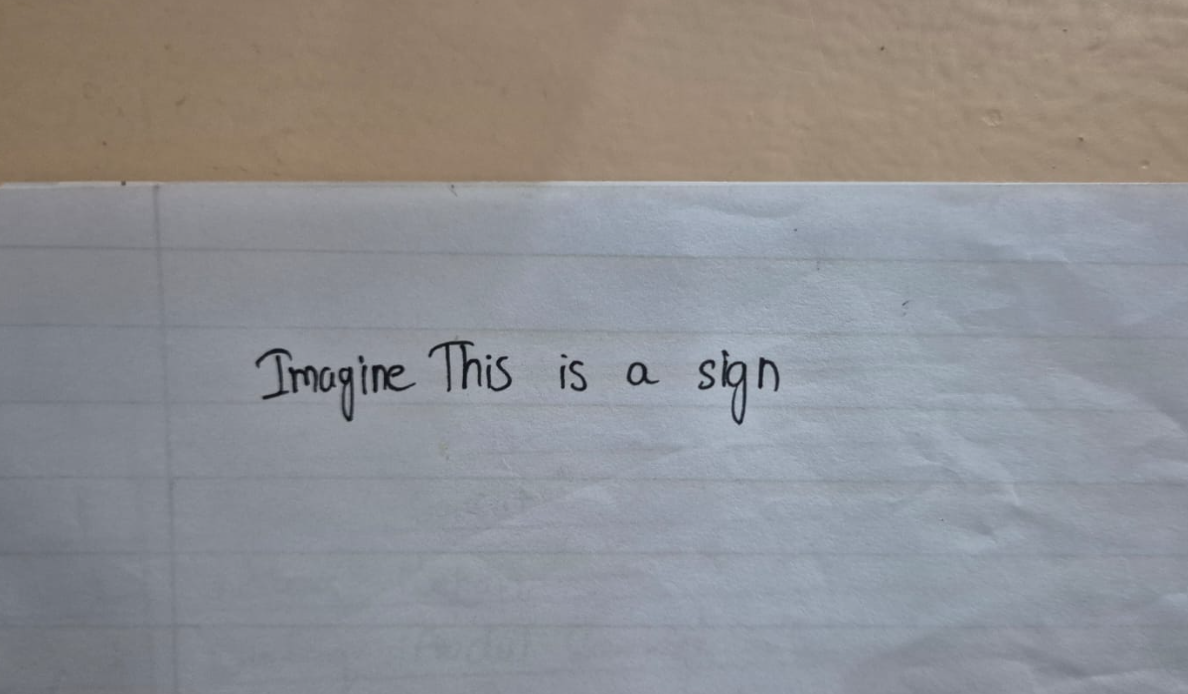 Imagine This is a sign